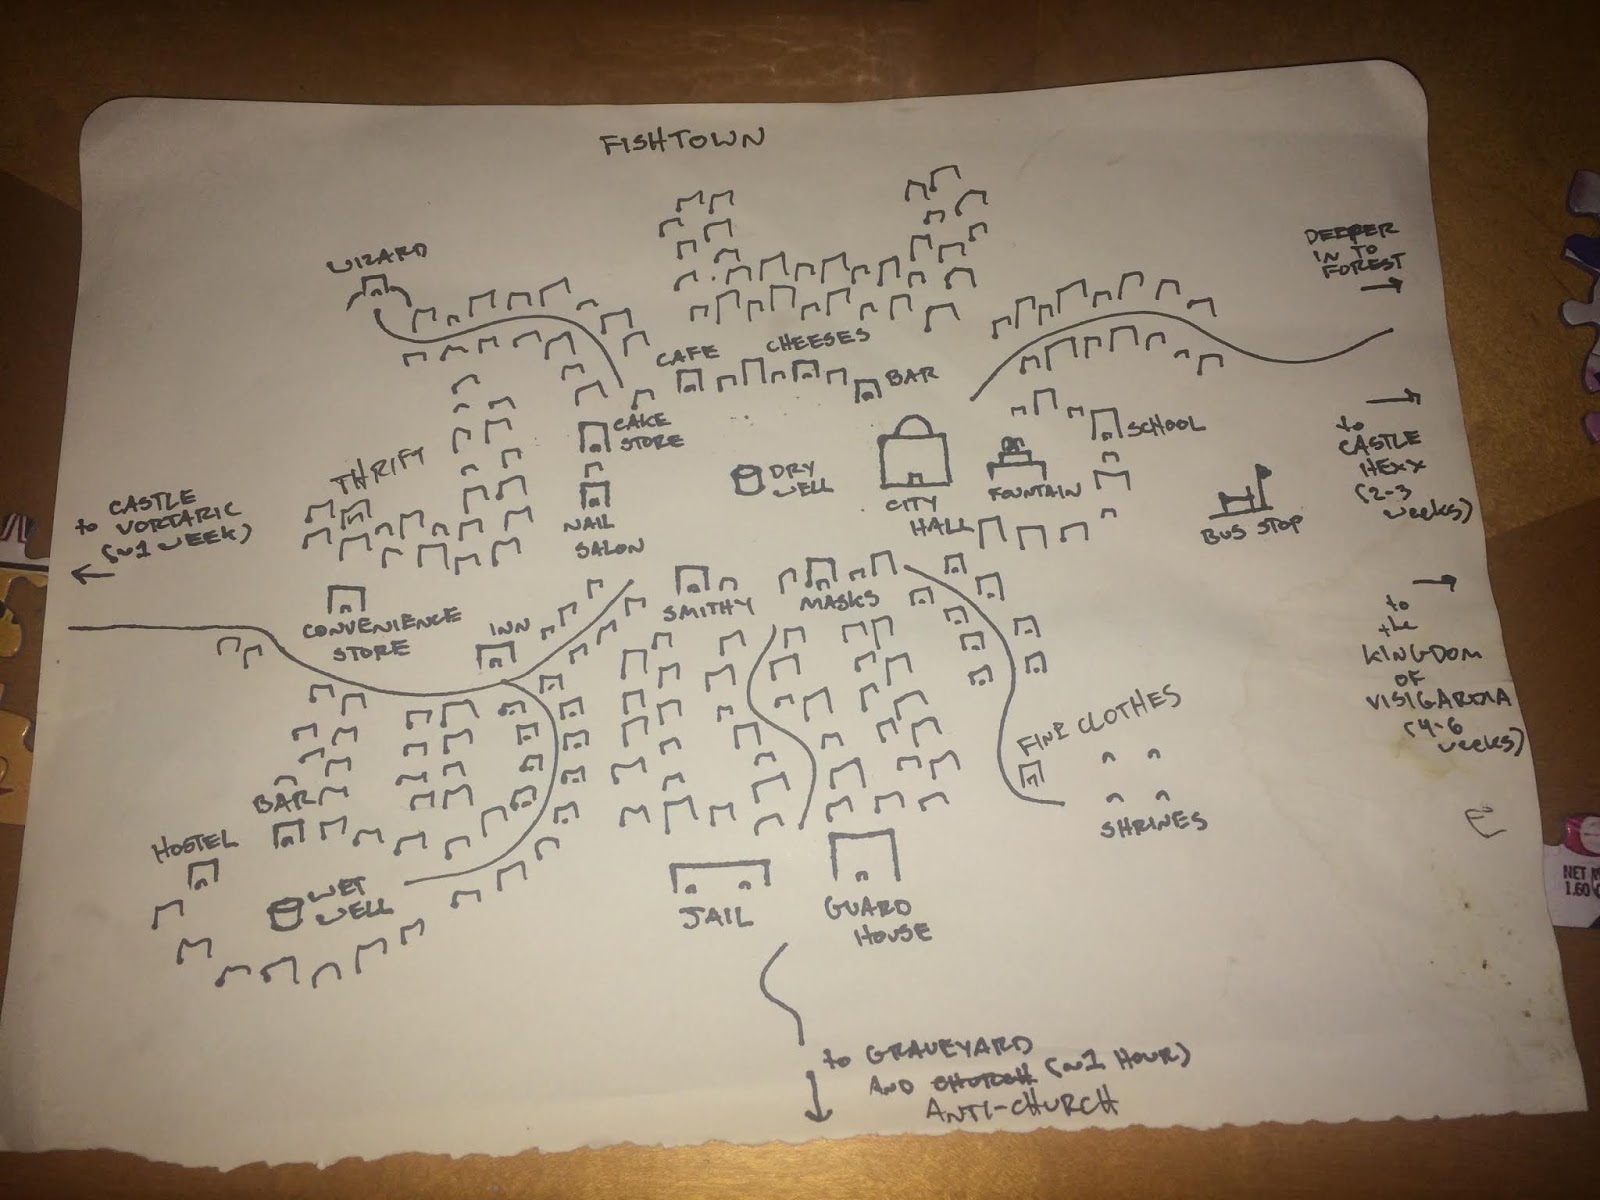 FISHTOWN
WIZARD
DEEPER
IN TO
FOREST
CAFE
CHEESES
BAR
CAKE
STORE
SCHOOL
THRIFT
DRY
WELL
CITY
HALL
FOUNTAIN
BUS STOP
to
CASTLE
HEXX
(2-3
weeks)
to CASTLE
VORTARIC
(~1 WEEK)
NAIL
SALON
CONVENIENCE
STORE
INN
SMITHY
MASKS
to
the
KINGDOM
OF
VISIGARDIA
(4-6
weeks)
FINE CLOTHES
SHRINES
BAR
HOSTEL
WET
WELL
JAIL
GUARD
HOUSE
to GRAVEYARD
AND CHURCH (~1 HOUR)
ANTI-CHURCH
NET
1.60